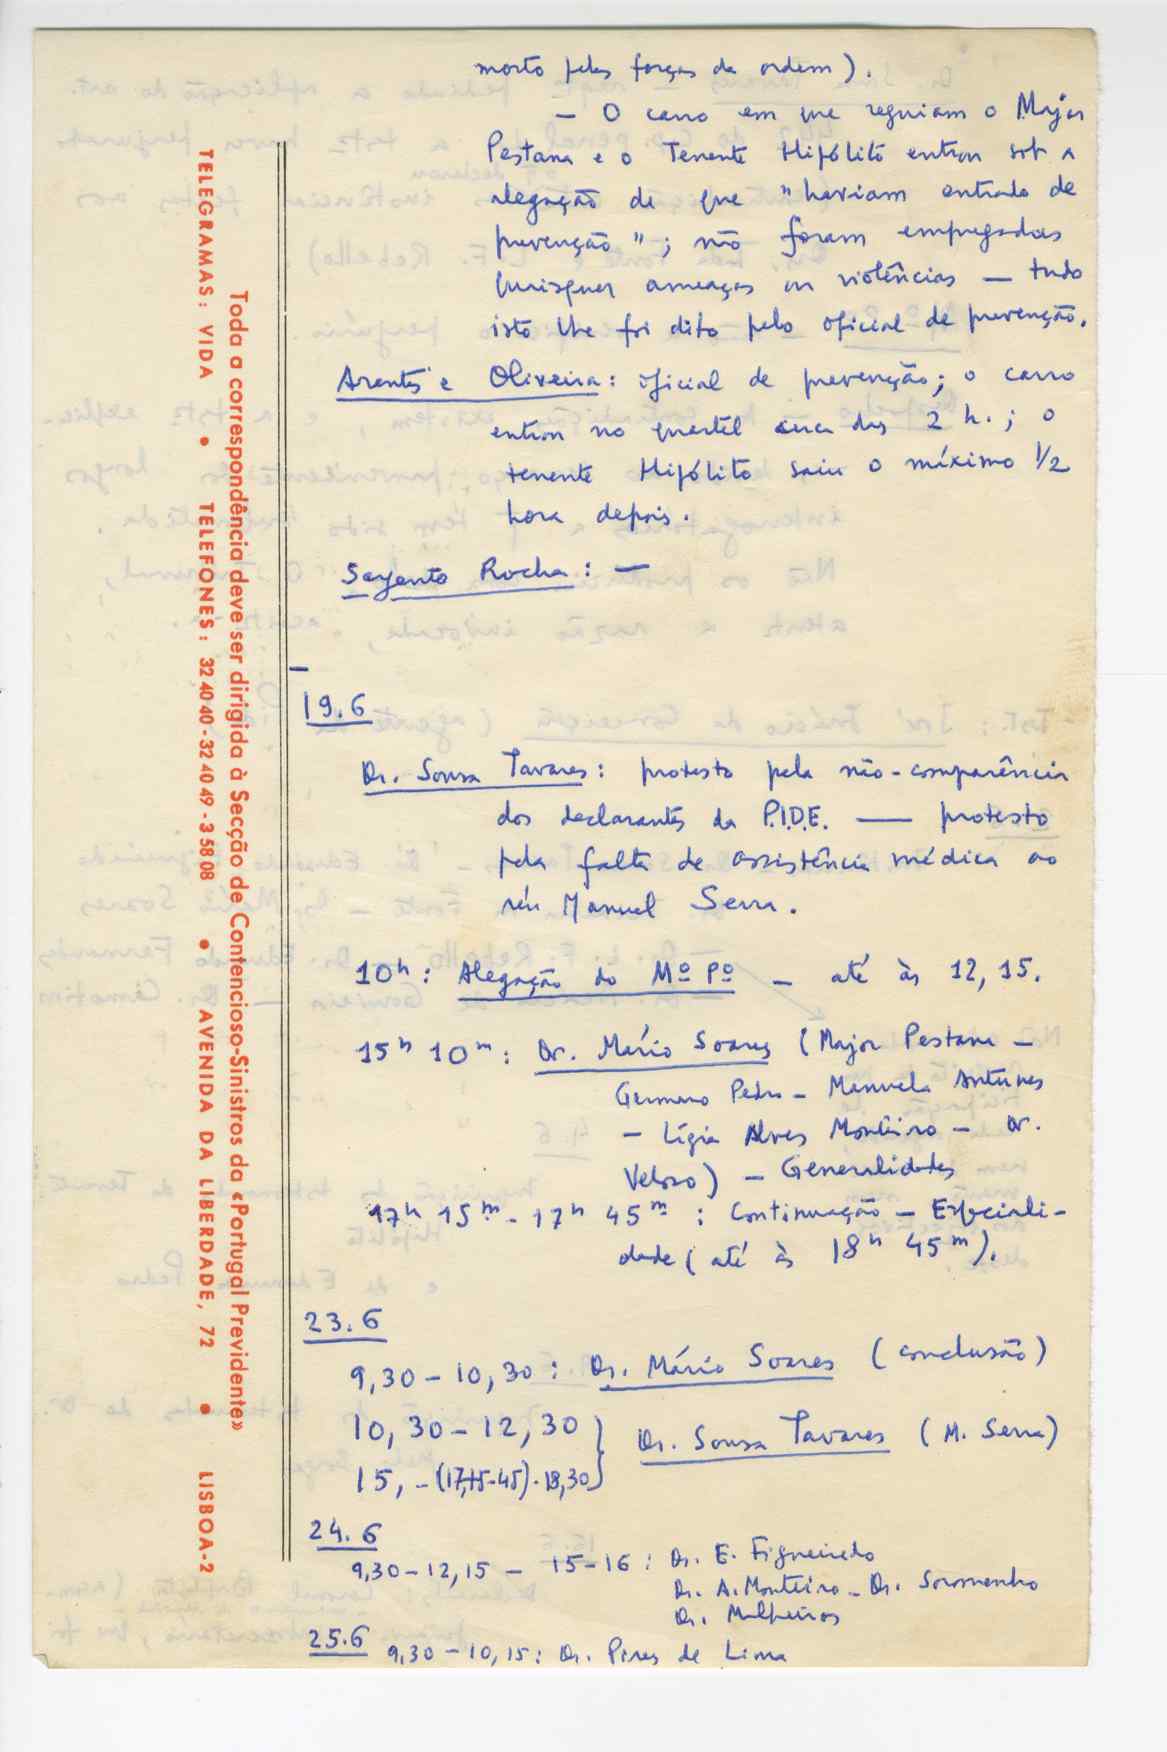 morto pelas forças da ordem).
— O carro em que seguiam o Major
Pestana e o Tenente Hipólito entrou sob a
alegação de que "haviam entrado de
prevenção"; não foram empregadas
quaisquer ameaças ou violências — tudo
isto lhe foi dito pelo oficial de prevenção.
Arantes e Oliveira: oficial de prevenção; o carro
entrou no quartel cerca das 2 h.; o
tenente Hipólito saiu o máximo 1/2
hora depois.
Sargento Rocha: —
19.6
Dr. Sousa Tavares: protesto pela não-comparência
dos declarantes da P.I.D.E. — protesto
pela falta de assistência médica ao
réu Manuel Serra.
10h: Alegação do Mº Pº — até às 12,15.
15h 10m: Dr. Mário Soares (Major Pestana —
Germano Pedro — Manuela Antunes
— Lígia Alves Monteiro — Dr.
Veloso) — Generalidades
17h 15m - 17h 45m: Continuação — Especiali-
dade (até às 18h 45m).
23.6
9,30 — 10,30: Dr. Mário Soares (conclusão)
10,30 — 12,30
15, - (17,15-45) - 18,30 } Dr. Sousa Tavares (M. Serra)
24.6
9,30 — 12,15 — 15-16: Dr. E. Figueiredo
Dr. A. Monteiro — Dr. Soromenho
Dr. Malheiros
25.6 9,30 — 10,15: Dr. Pires de Lima
Toda a correspondência deve ser dirigida à Secção de Contencioso-Sinistros da «Portugal Previdente»
TELEGRAMAS: VIDA • TELEFONES: 32 40 40 - 32 40 49 - 3 58 08 • AVENIDA DA LIBERDADE, 72 • LISBOA-2